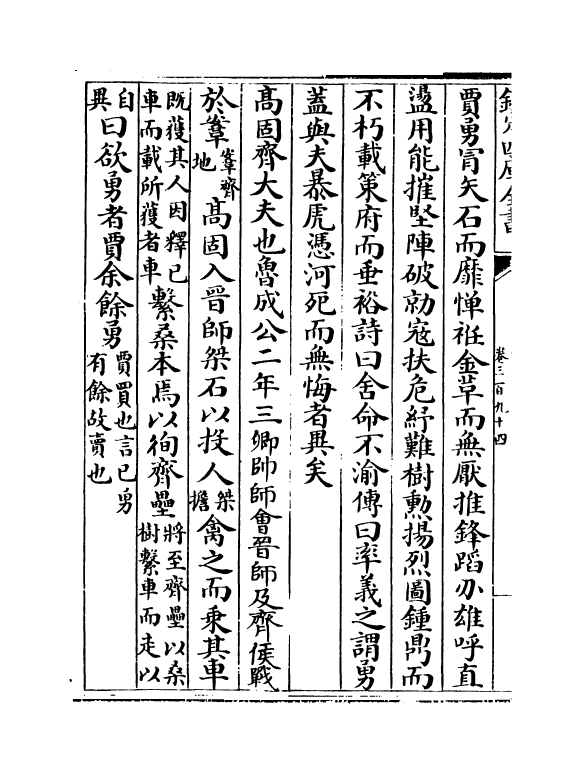 欽定四庫全書
卷三百九十四
賈勇冒矢石而靡憚袵金革而無厭推鋒蹈刃雄呼直
盪用能摧堅陣破勍寇扶危紓難樹勳揚烈圖鍾鼎而
不朽載策府而垂裕詩曰舍命不渝傳曰率義之謂勇
蓋與夫暴虎憑河死而無悔者異矣
高固齊大夫也魯成公二年三卿帥師會晉師及齊侯戰
於鞌鞌齊地高固入晉師桀石以投人桀擔禽之而乗其車
既獲其人因釋已車而載所獲者車繫桑本焉以徇齊壘將至齊壘以桑樹繫車而走以
自異曰欲勇者賈余餘勇賈買也言已勇有餘故賣也